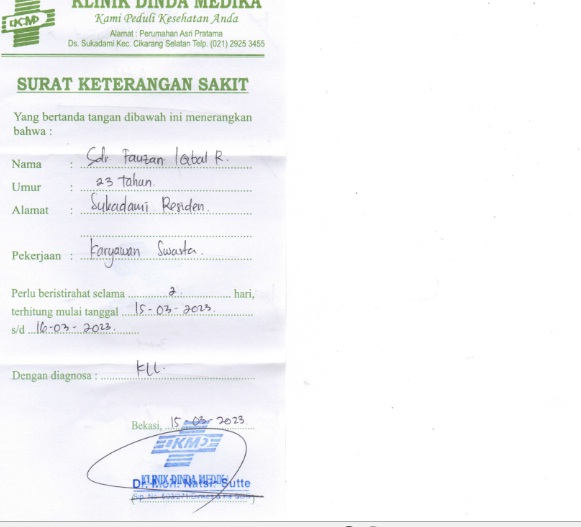 KLINIK DINDA MEDIKA
Kami Peduli Kesehatan Anda
Alamat : Perumahan Asri Pratama
Ds. Sukadami Kec. Cikarang Selatan Telp. (021) 2925 3455
KMD
SURAT KETERANGAN SAKIT
Yang bertanda tangan dibawah ini menerangkan
bahwa :
Nama : Sdr. Fauzan Iqbal R.
Umur : 23 tahun.
Alamat : Sukadami Residen.
Pekerjaan : Karyawan Swasta.
Perlu beristirahat selama 2 hari,
terhitung mulai tanggal 15-03-2023.
s/d 16-03-2023.
Dengan diagnosa : KLL.
Bekasi, 15-03-2023
KMD
KLINIK DINDA MEDIKA
Dr. Moh. Natsir Sutte